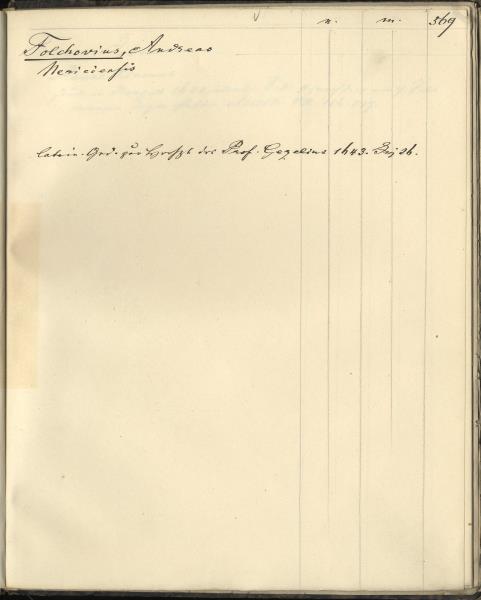 n. m. 369
Folchovius, Andreas
Nericiensis
latein. Ged. zur Hochzt des Prof. Gezelius 1643. Bij 2b.